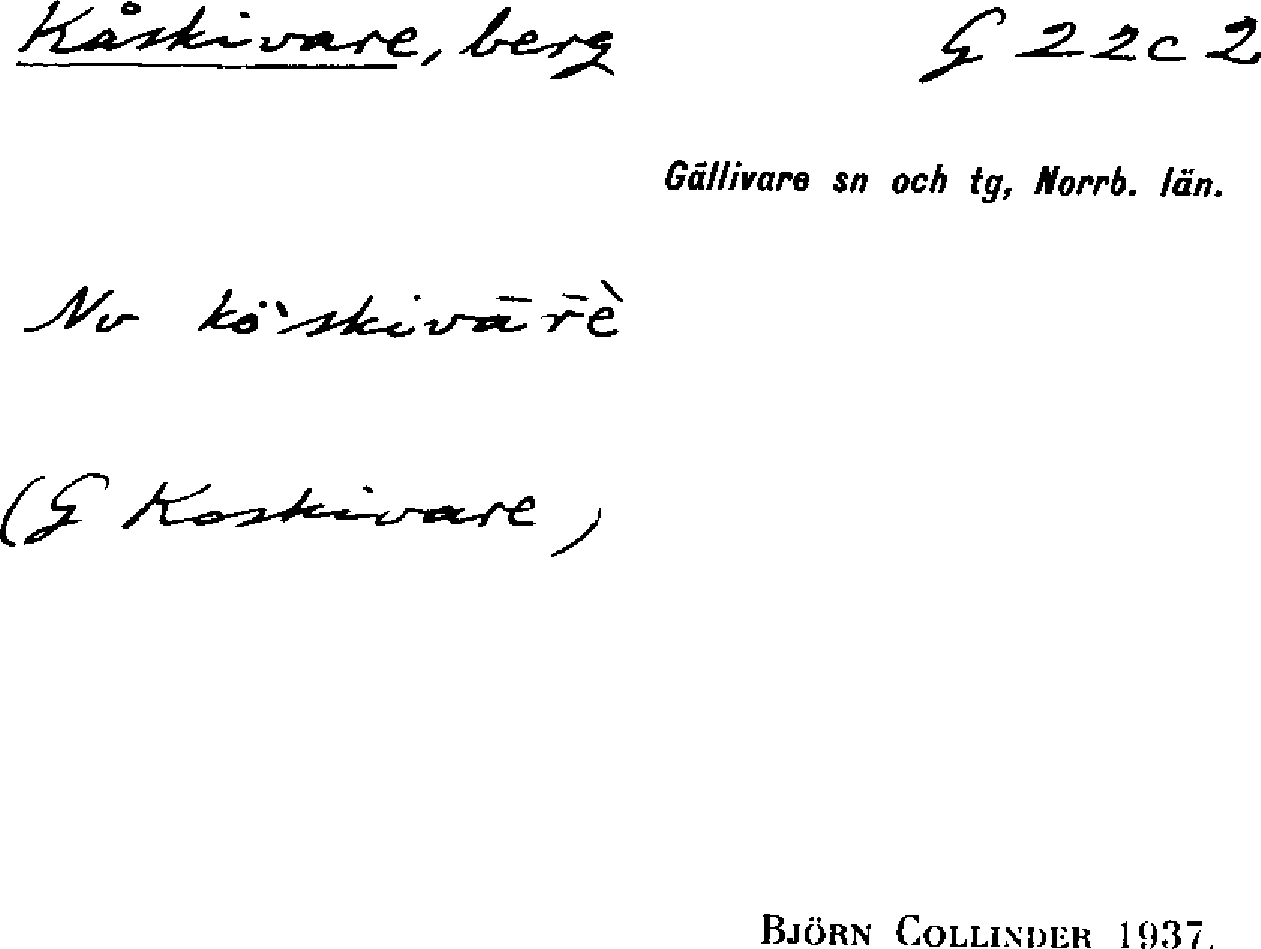 Kåskivare, berg G 22c2
Gällivare sn och tg, Norrb. län.
Nv kö`skivār̄è
(G Koskivare)
BJÖRN COLLINDER 1937.